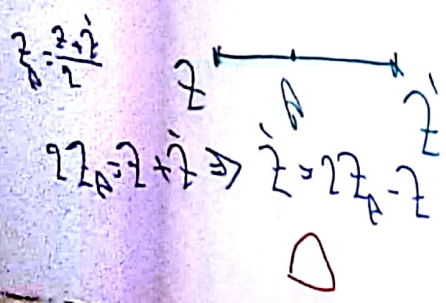 z_A = \frac{z + z'}{2}
z A z'
2z_A = z + z' ⇒ z' = 2z_A - z